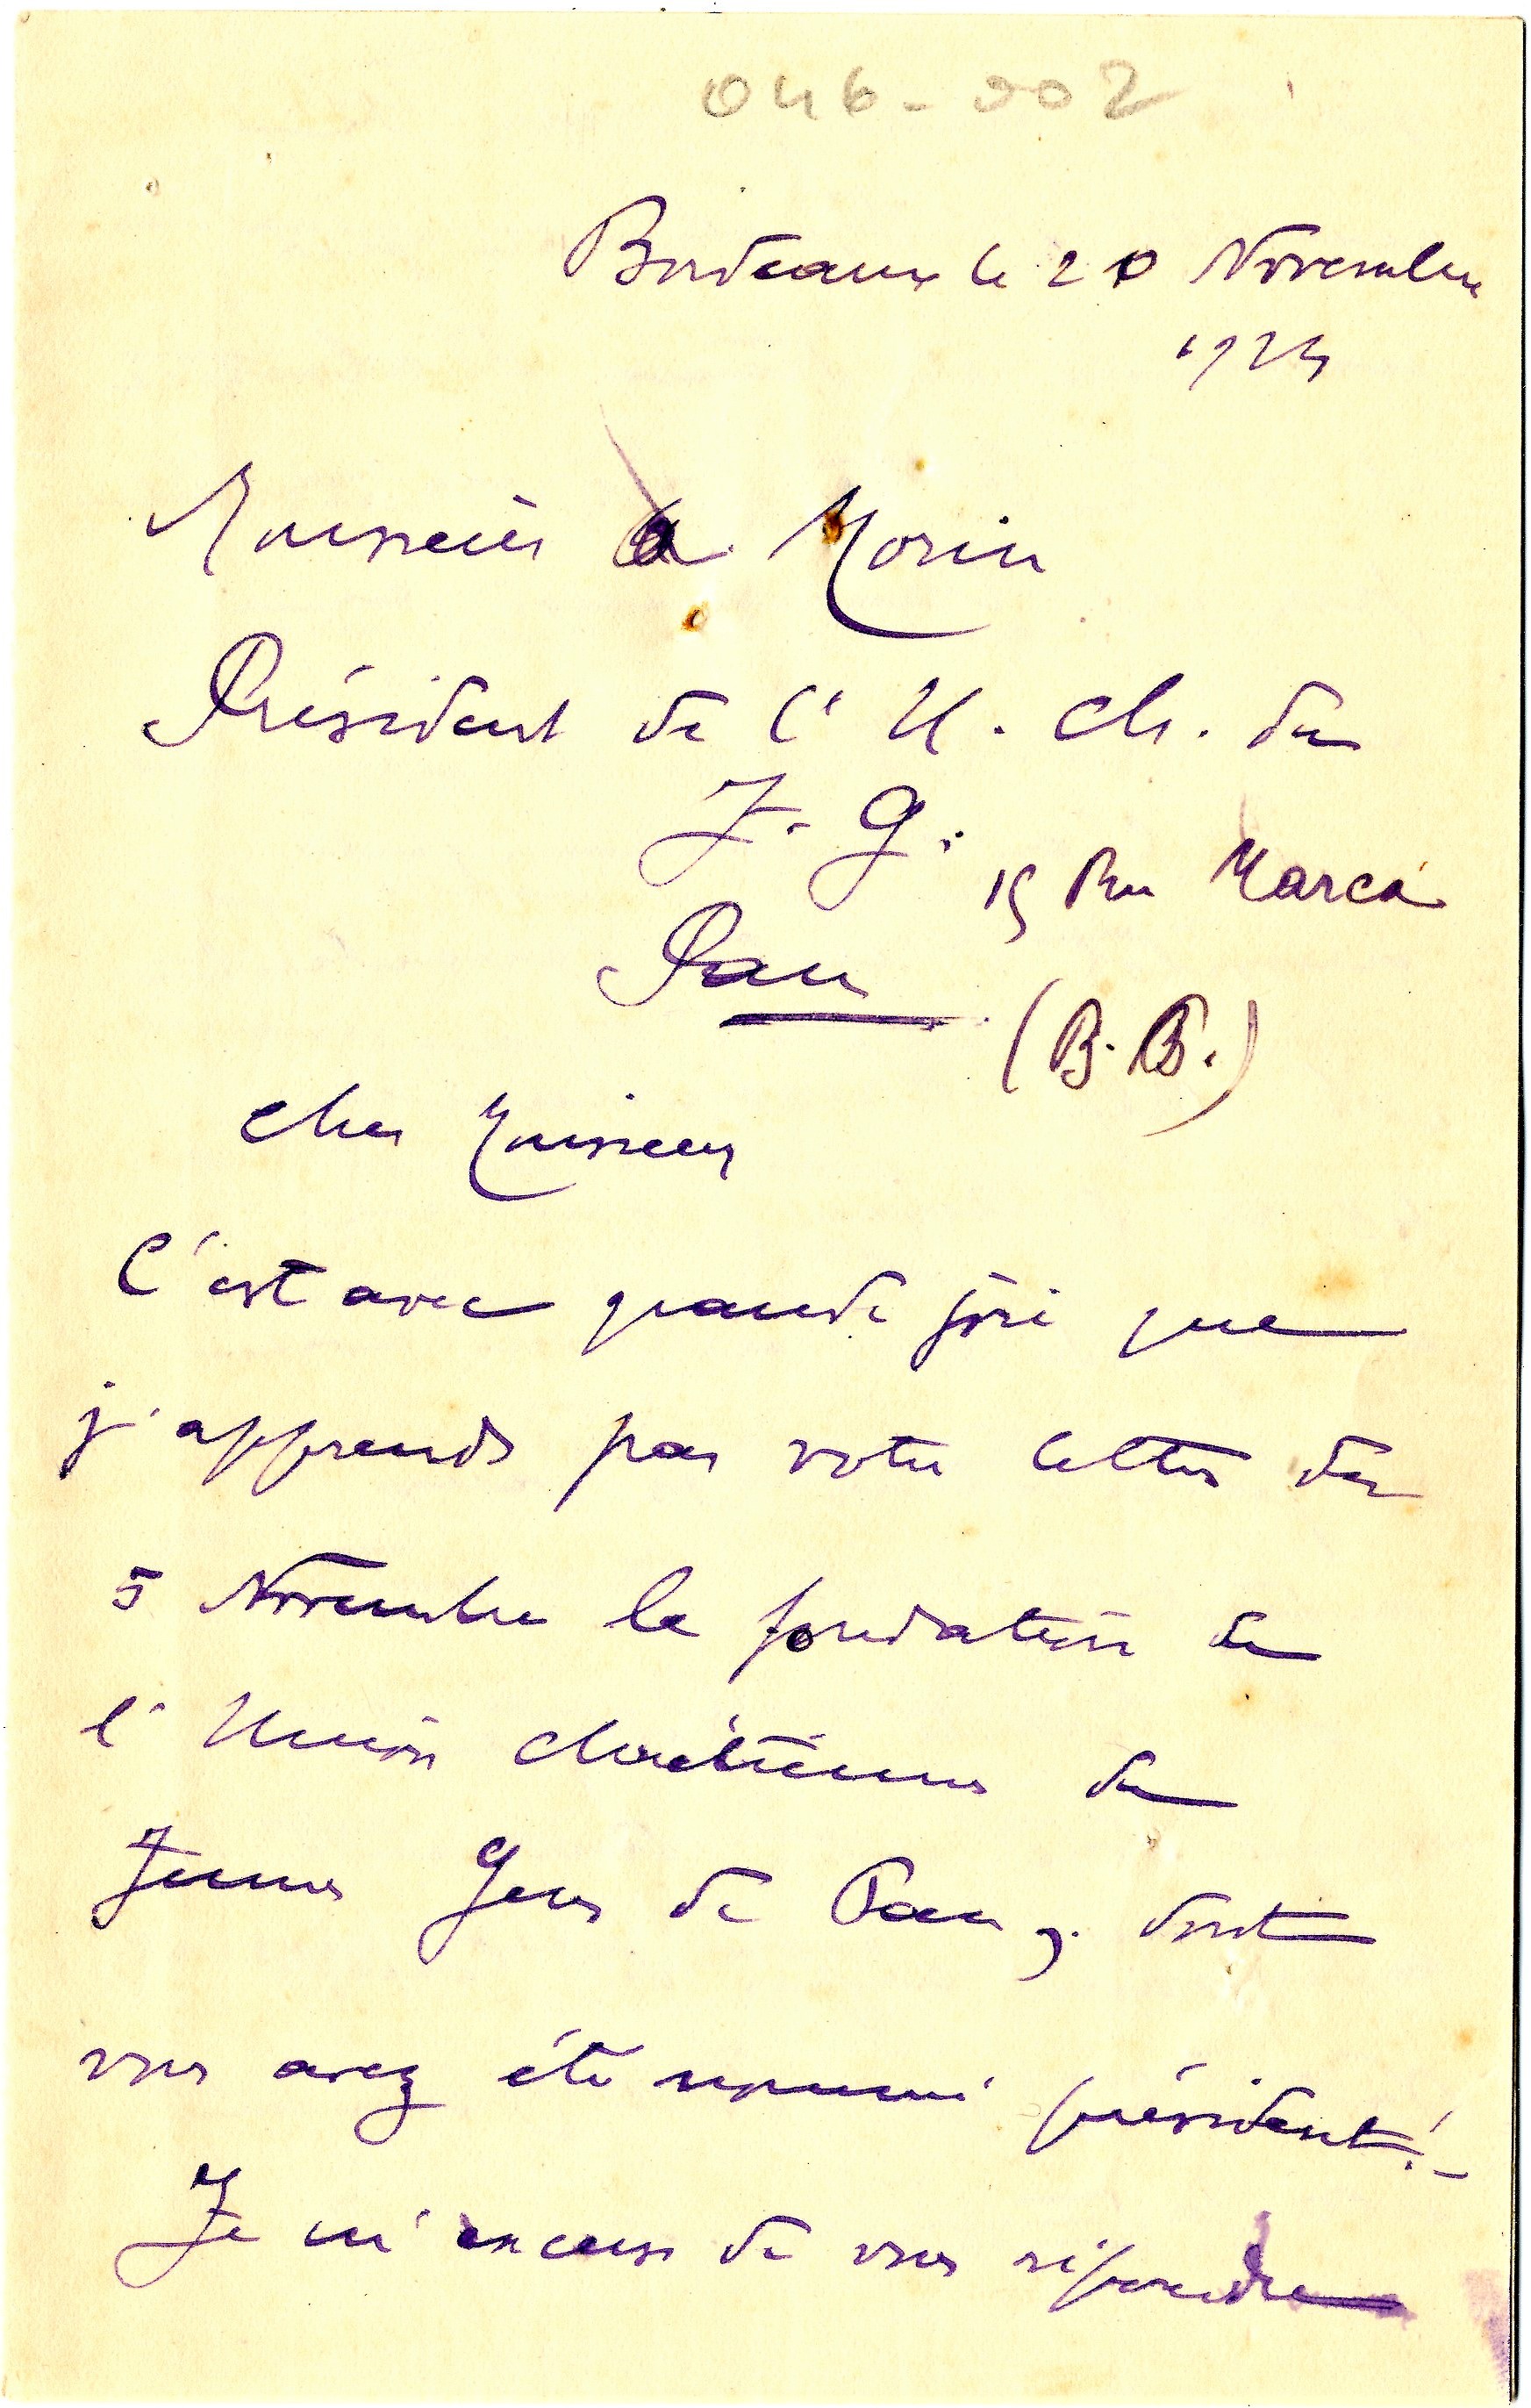 046-002
Bordeaux le 20 Novembre
1924
Monsieur Morin
Président de l'U. Ch. de
J. G.
15 Rue Marca
Pau
(B. P.)
Cher Monsieur
C'est avec grande joie que
j'apprends par votre lettre du
5 Novembre la fondation de
l'Union chrétienne de
Jeunes Gens de Pau, dont
vous avez été nommé président! -
Je m'excuse de vous répondre